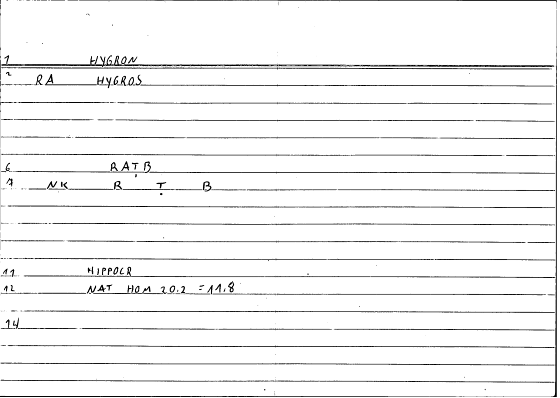 1 HYGRON
2 RA HYGROS
6 RAṬB
7 NK R Ṭ B
11 HIPPOCR
12 NAT HOM 20.2 = 11.8
14